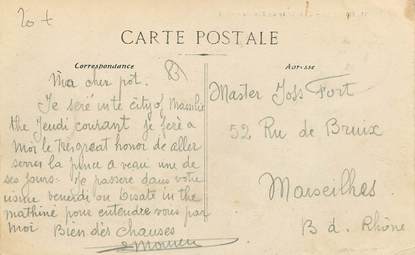 20 t
CARTE POSTALE
Correspondance
Adresse
Ma cher pôt.
Je seré in te city of Marsilie
the Jeudi courant Je feré a
Moi le très great honor de aller
serrer la pince a veau une de
ses jours. Je passeré dans votre
usine venerdi ou Usate in the
mathiné pour entendre vous par
moi Bien dés chauses
Master Joss Fort
52 Rue de Bruix
Marseilhes
B d. Rhône